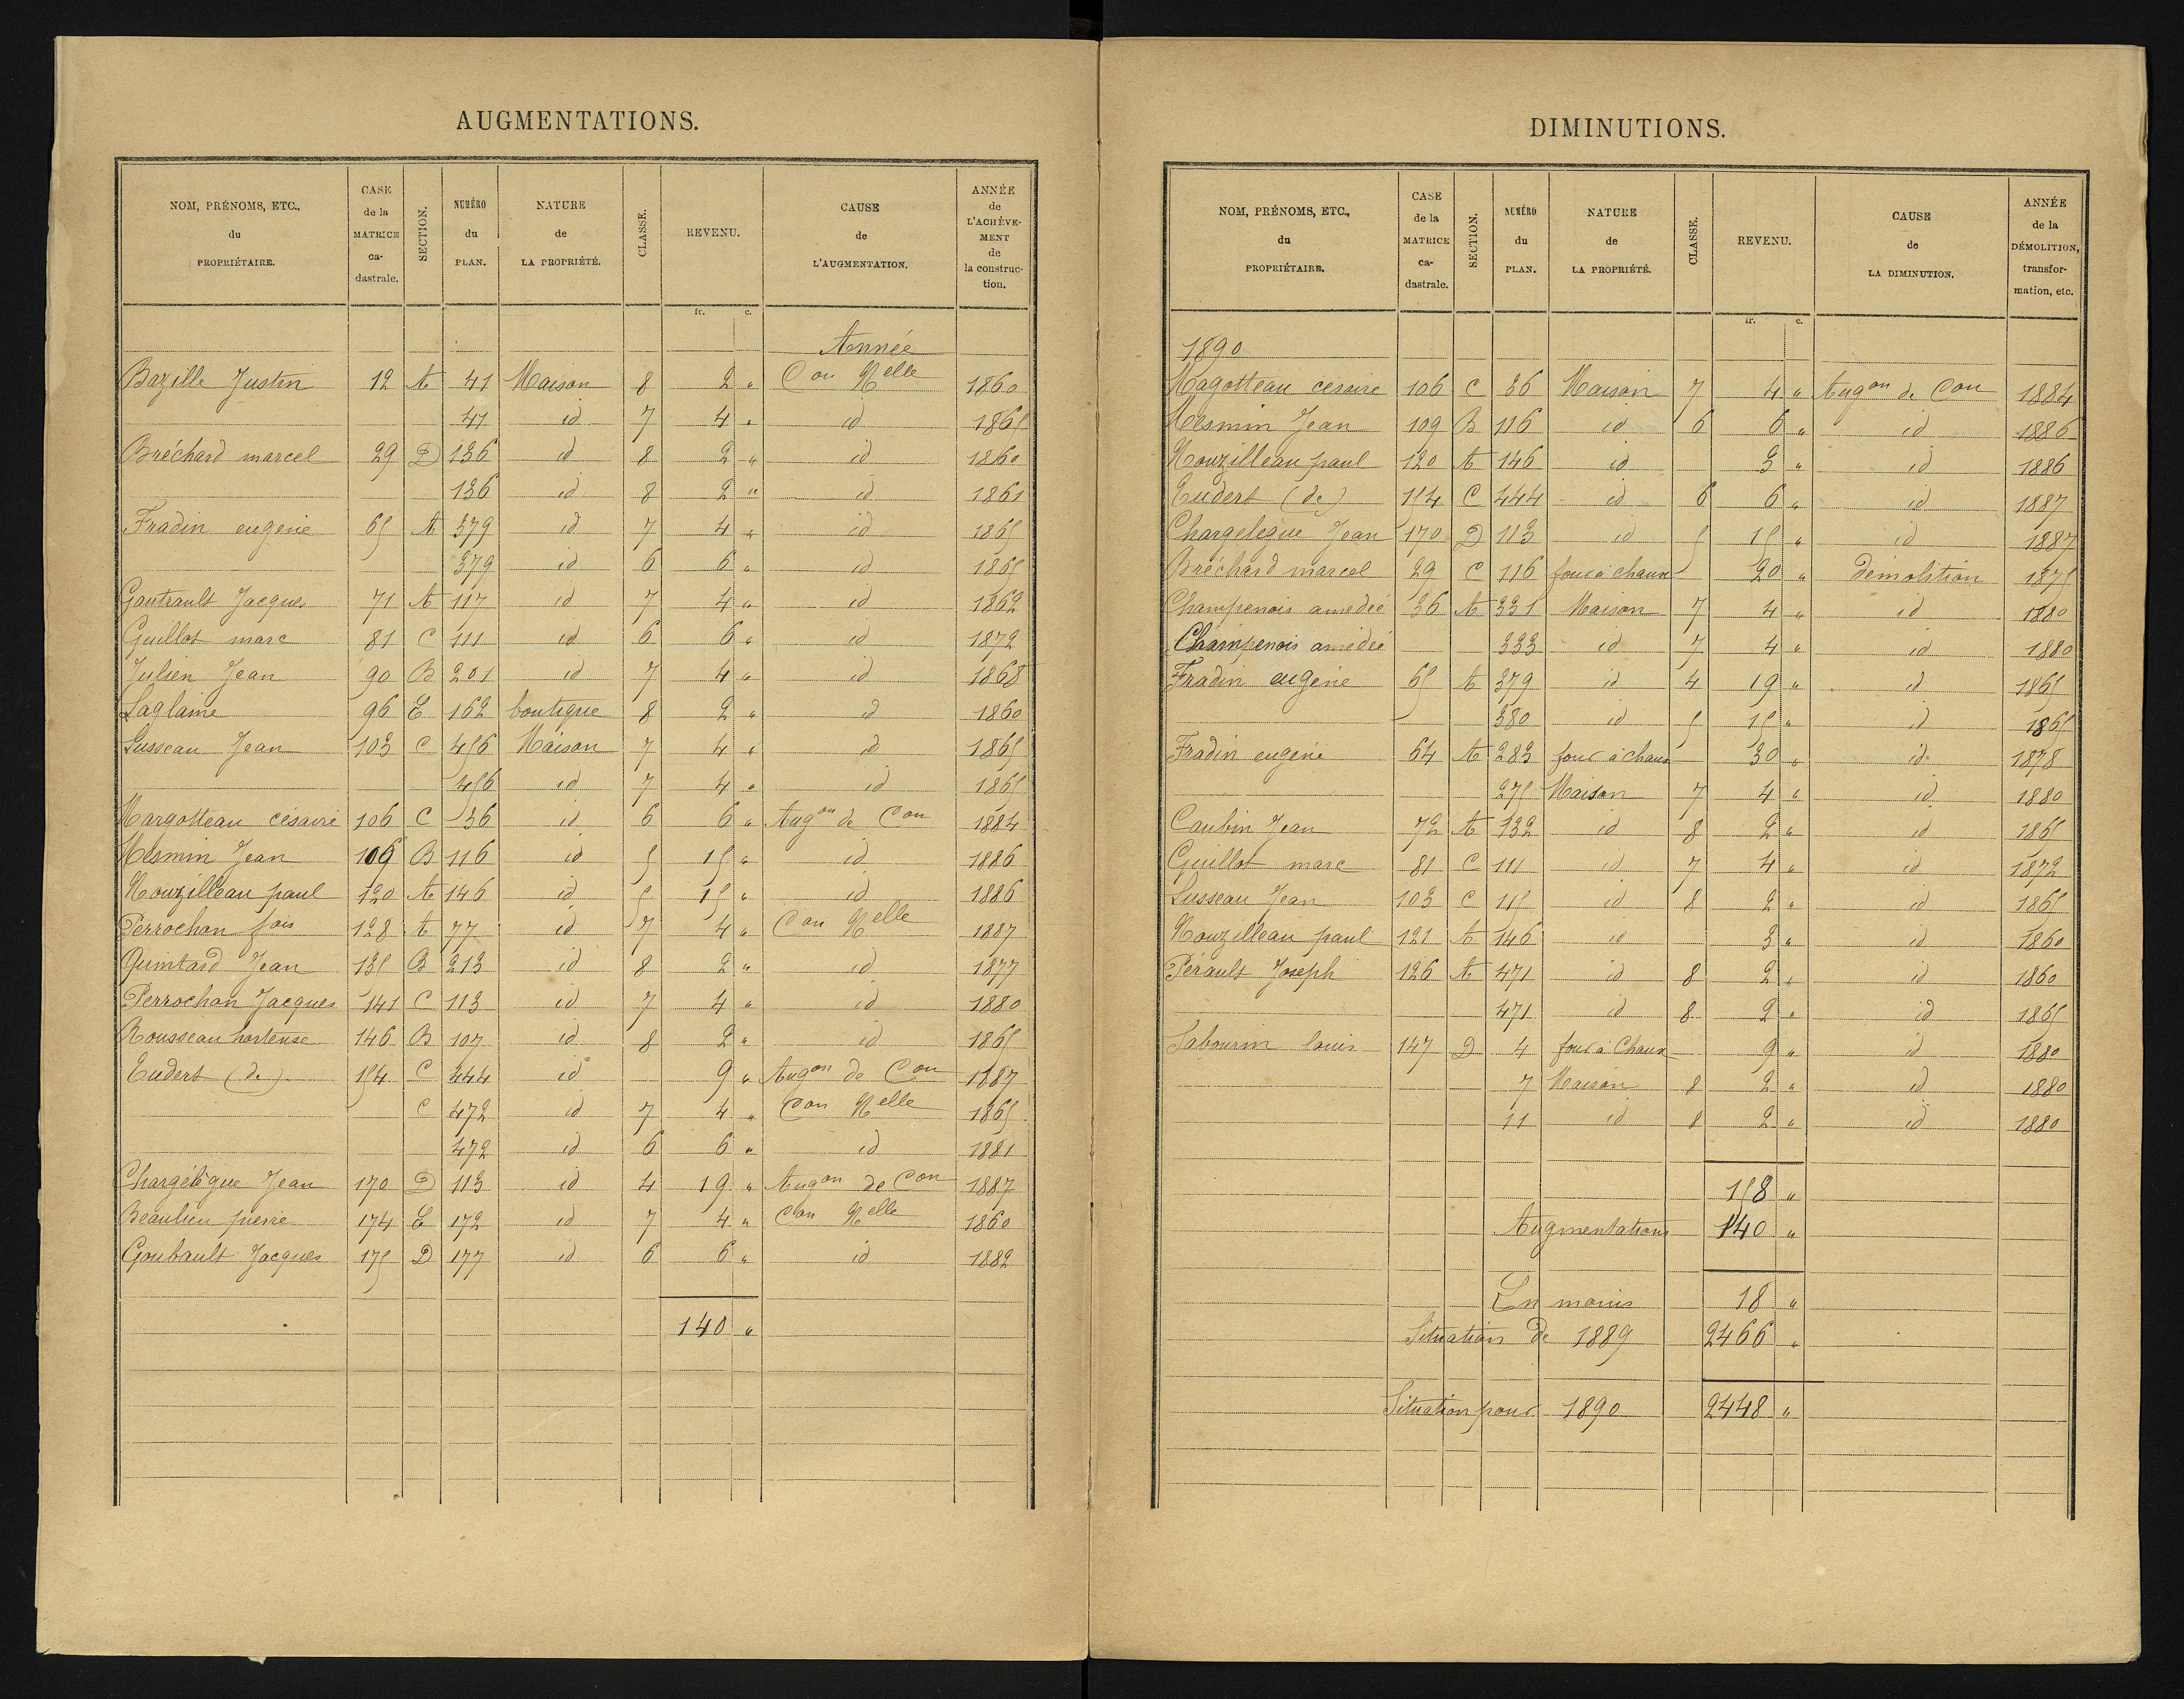 AUGMENTATIONS.
NOM, PRÉNOMS, ETC., du PROPRIÉTAIRE. | CASE de la MATRICE ca-dastrale. | SECTION. | NUMÉRO du PLAN. | NATURE de LA PROPRIÉTÉ. | CLASSE. | REVENU. | CAUSE de L'AUGMENTATION. | ANNÉE de L'ACHÈVE-MENT de la construc-tion.
fr. c.
Année
Bazille Justin 12 A 41 Maison 8 2 " Con Nelle 1860
41 id 7 4 " id 1865
Bréchard marcel 29 D 136 id 8 2 " id 1860
136 id 8 2 " id 1861
Fradin eugène 65 A 379 id 7 4 " id 1865
379 id 6 6 " id 1865
Gautrault Jacques 71 A 117 id 7 4 " id 1862
Guillot marc 81 C 111 id 6 6 " id 1872
Julien Jean 90 B 201 id 7 4 " id 1868
Laglaine 96 E 162 boutique 8 2 " id 1860
Lusseau Jean 103 C 456 Maison 7 4 " id 1865
456 id 7 4 " id 1865
Margotteau césaire 106 C 36 id 6 6 " Augon de Con 1884
Mesmin Jean 109 B 116 id 5 15 " id 1886
Nouzilleau paul 120 A 146 id 5 15 " id 1886
Perrochon fois 128 A 77 id 7 4 " Con Nelle 1887
Quintard Jean 135 B 213 id 8 2 " id 1877
Perrochon Jacques 141 C 113 id 7 4 " id 1880
Rousseau hortense 146 B 107 id 8 2 " id 1865
Eudert (de) 154 C 444 id 9 " Augon de Con 1887
C 472 id 7 4 " Con Nelle 1865
472 id 6 6 " id 1881
Chargélègue Jean 170 D 113 id 4 19 " Augon de Con 1887
Beaulieu pierre 174 E 172 id 7 4 " Con Nelle 1860
Goubault Jacques 175 D 177 id 6 6 " id 1882
140 "
DIMINUTIONS.
NOM, PRÉNOMS, ETC., du PROPRIÉTAIRE. | CASE de la MATRICE ca-dastrale. | SECTION. | NUMÉRO du PLAN. | NATURE de LA PROPRIÉTÉ. | CLASSE. | REVENU. | CAUSE de LA DIMINUTION. | ANNÉE de la DÉMOLITION, transfor-mation, etc.
fr. c.
1890
Magotteau césaire 106 C 36 Maison 7 4 " Augon de Con 1884
Mesmin Jean 109 B 116 id 6 6 " id 1886
Nouzilleau paul 120 A 146 id 3 " id 1886
Eudert (de) 154 C 444 id 6 6 " id 1887
Chargelègue Jean 170 D 113 id 5 15 " id 1887
Bréchard marcel 29 C 116 four à chaux 20 " démolition 1875
Champenois amédée 36 A 331 Maison 7 4 " id 1880
Champenois amédée 333 id 7 4 " id 1880
Fradin eugène 65 A 379 id 4 19 " id 1865
380 id 5 15 " id 1865
Fradin eugène 64 A 283 four à chaux 30 " id 1878
275 Maison 7 4 " id 1880
Caubin Jean 72 A 132 id 8 2 " id 1865
Guillot marc 81 C 111 id 7 4 " id 1872
Lusseau Jean 103 C 115 id 8 2 " id 1865
Nouzilleau paul 121 A 146 id 3 " id 1860
Pérault Joseph 126 A 471 id 8 2 " id 1860
471 id 8 2 " id 1865
Sabourin louis 147 D 4 four à Chaux 9 " id 1880
7 Maison 8 2 " id 1880
11 id 8 2 " id 1880
158 "
Augmentations 140 "
En moins 18 "
Situation de 1889 2466 "
Situation pour 1890 2448 "